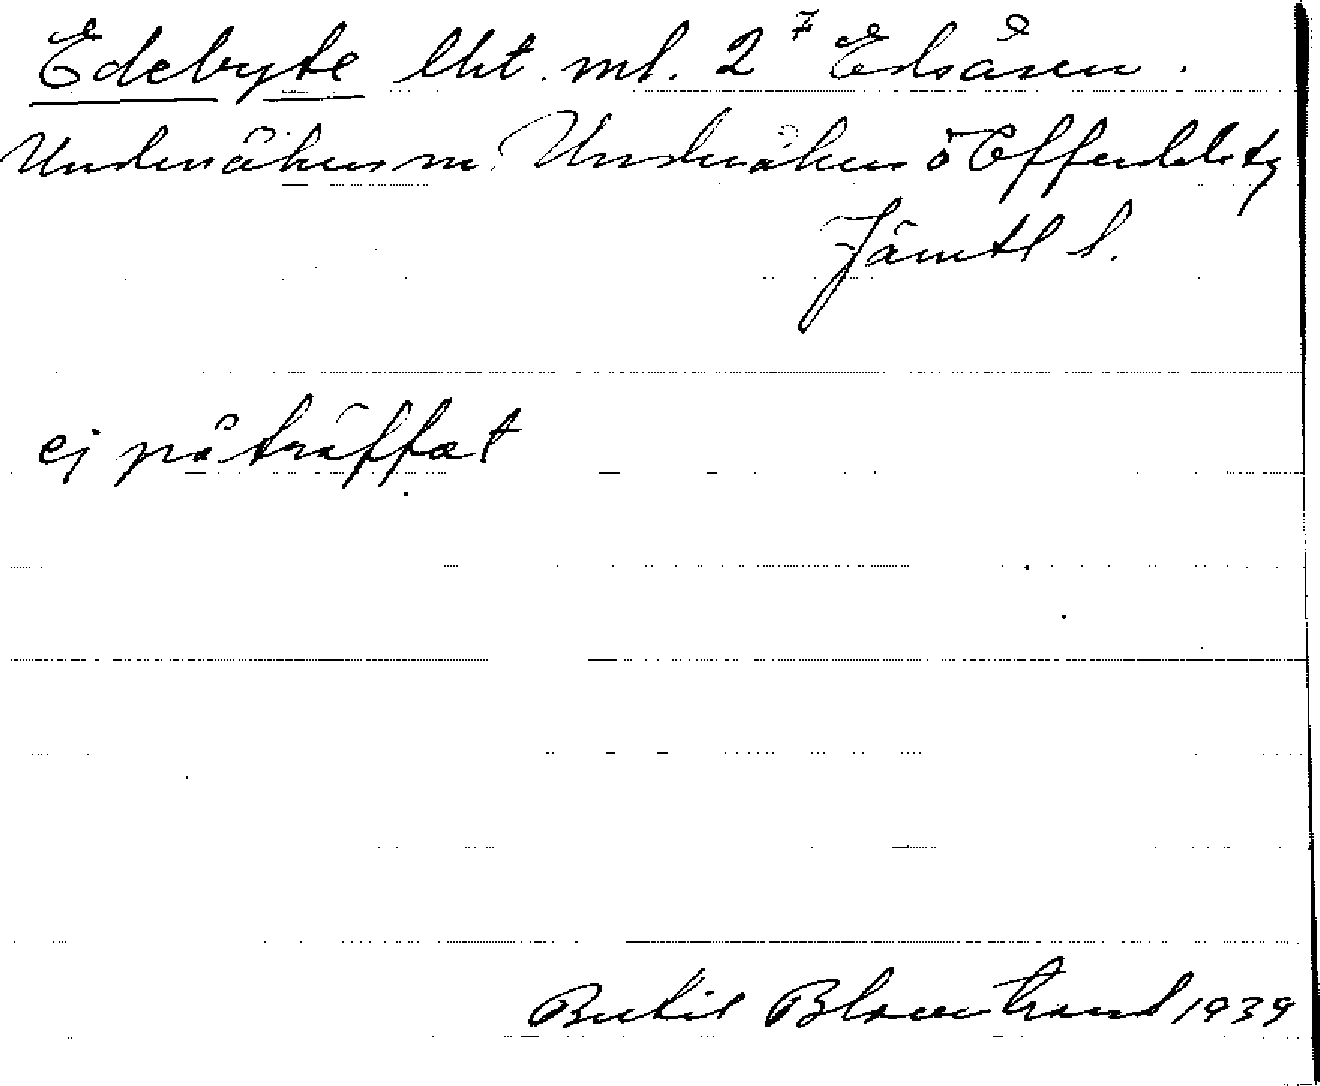 Edebyte lht. ml. 2⁷ Edsåsen.
Undersåkers sn. Undersåkers o Offerdals tg
Jämtl l.
ej påträffat
Bertil Blomstrand 1939